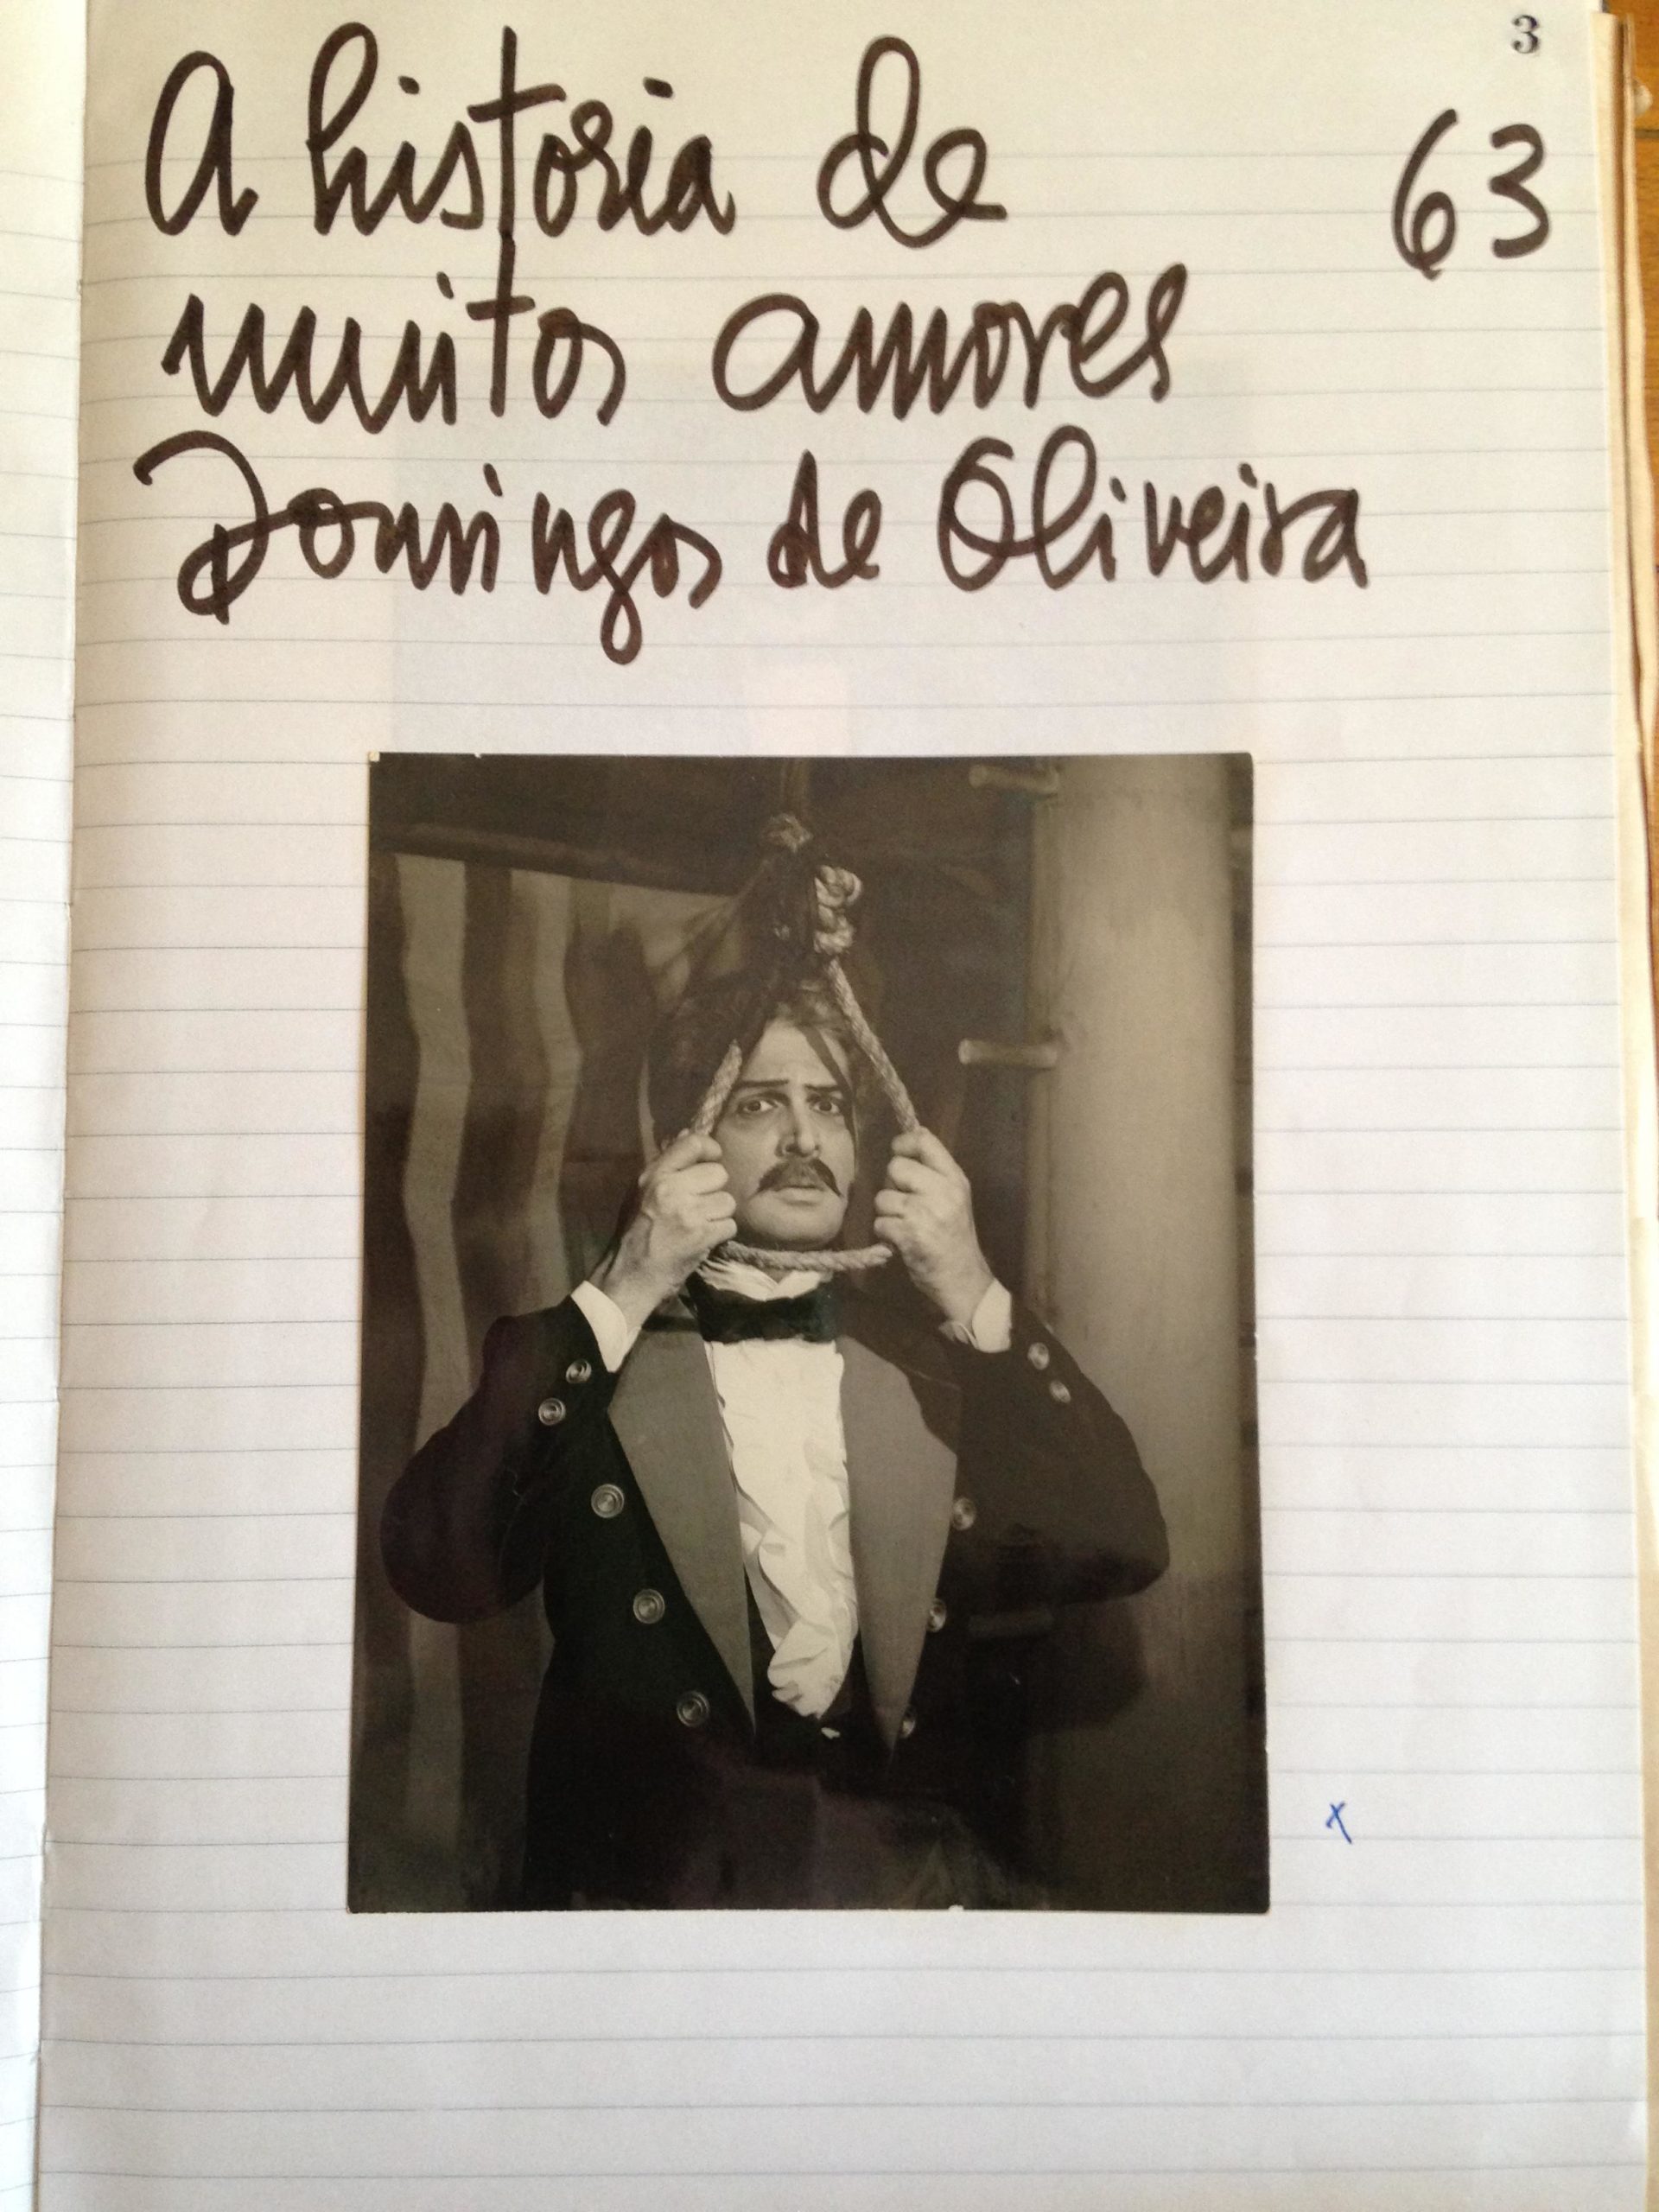 3
A historia de 63
muitos amores
Domingos de Oliveira
x